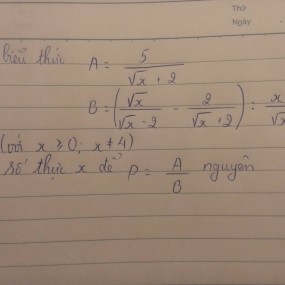 Thứ
Ngày
biểu thức A = 5 / (√x + 2)
B = (√x / (√x - 2) - 2 / (√x + 2)) : x / √x
(với x ≥ 0; x ≠ 4)
số thực x để P = A / B nguyên